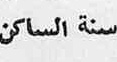 سنة الساكن